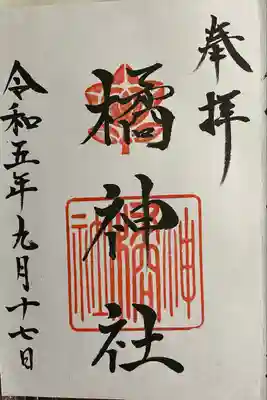 奉拝
橘神社
令和五年九月十七日